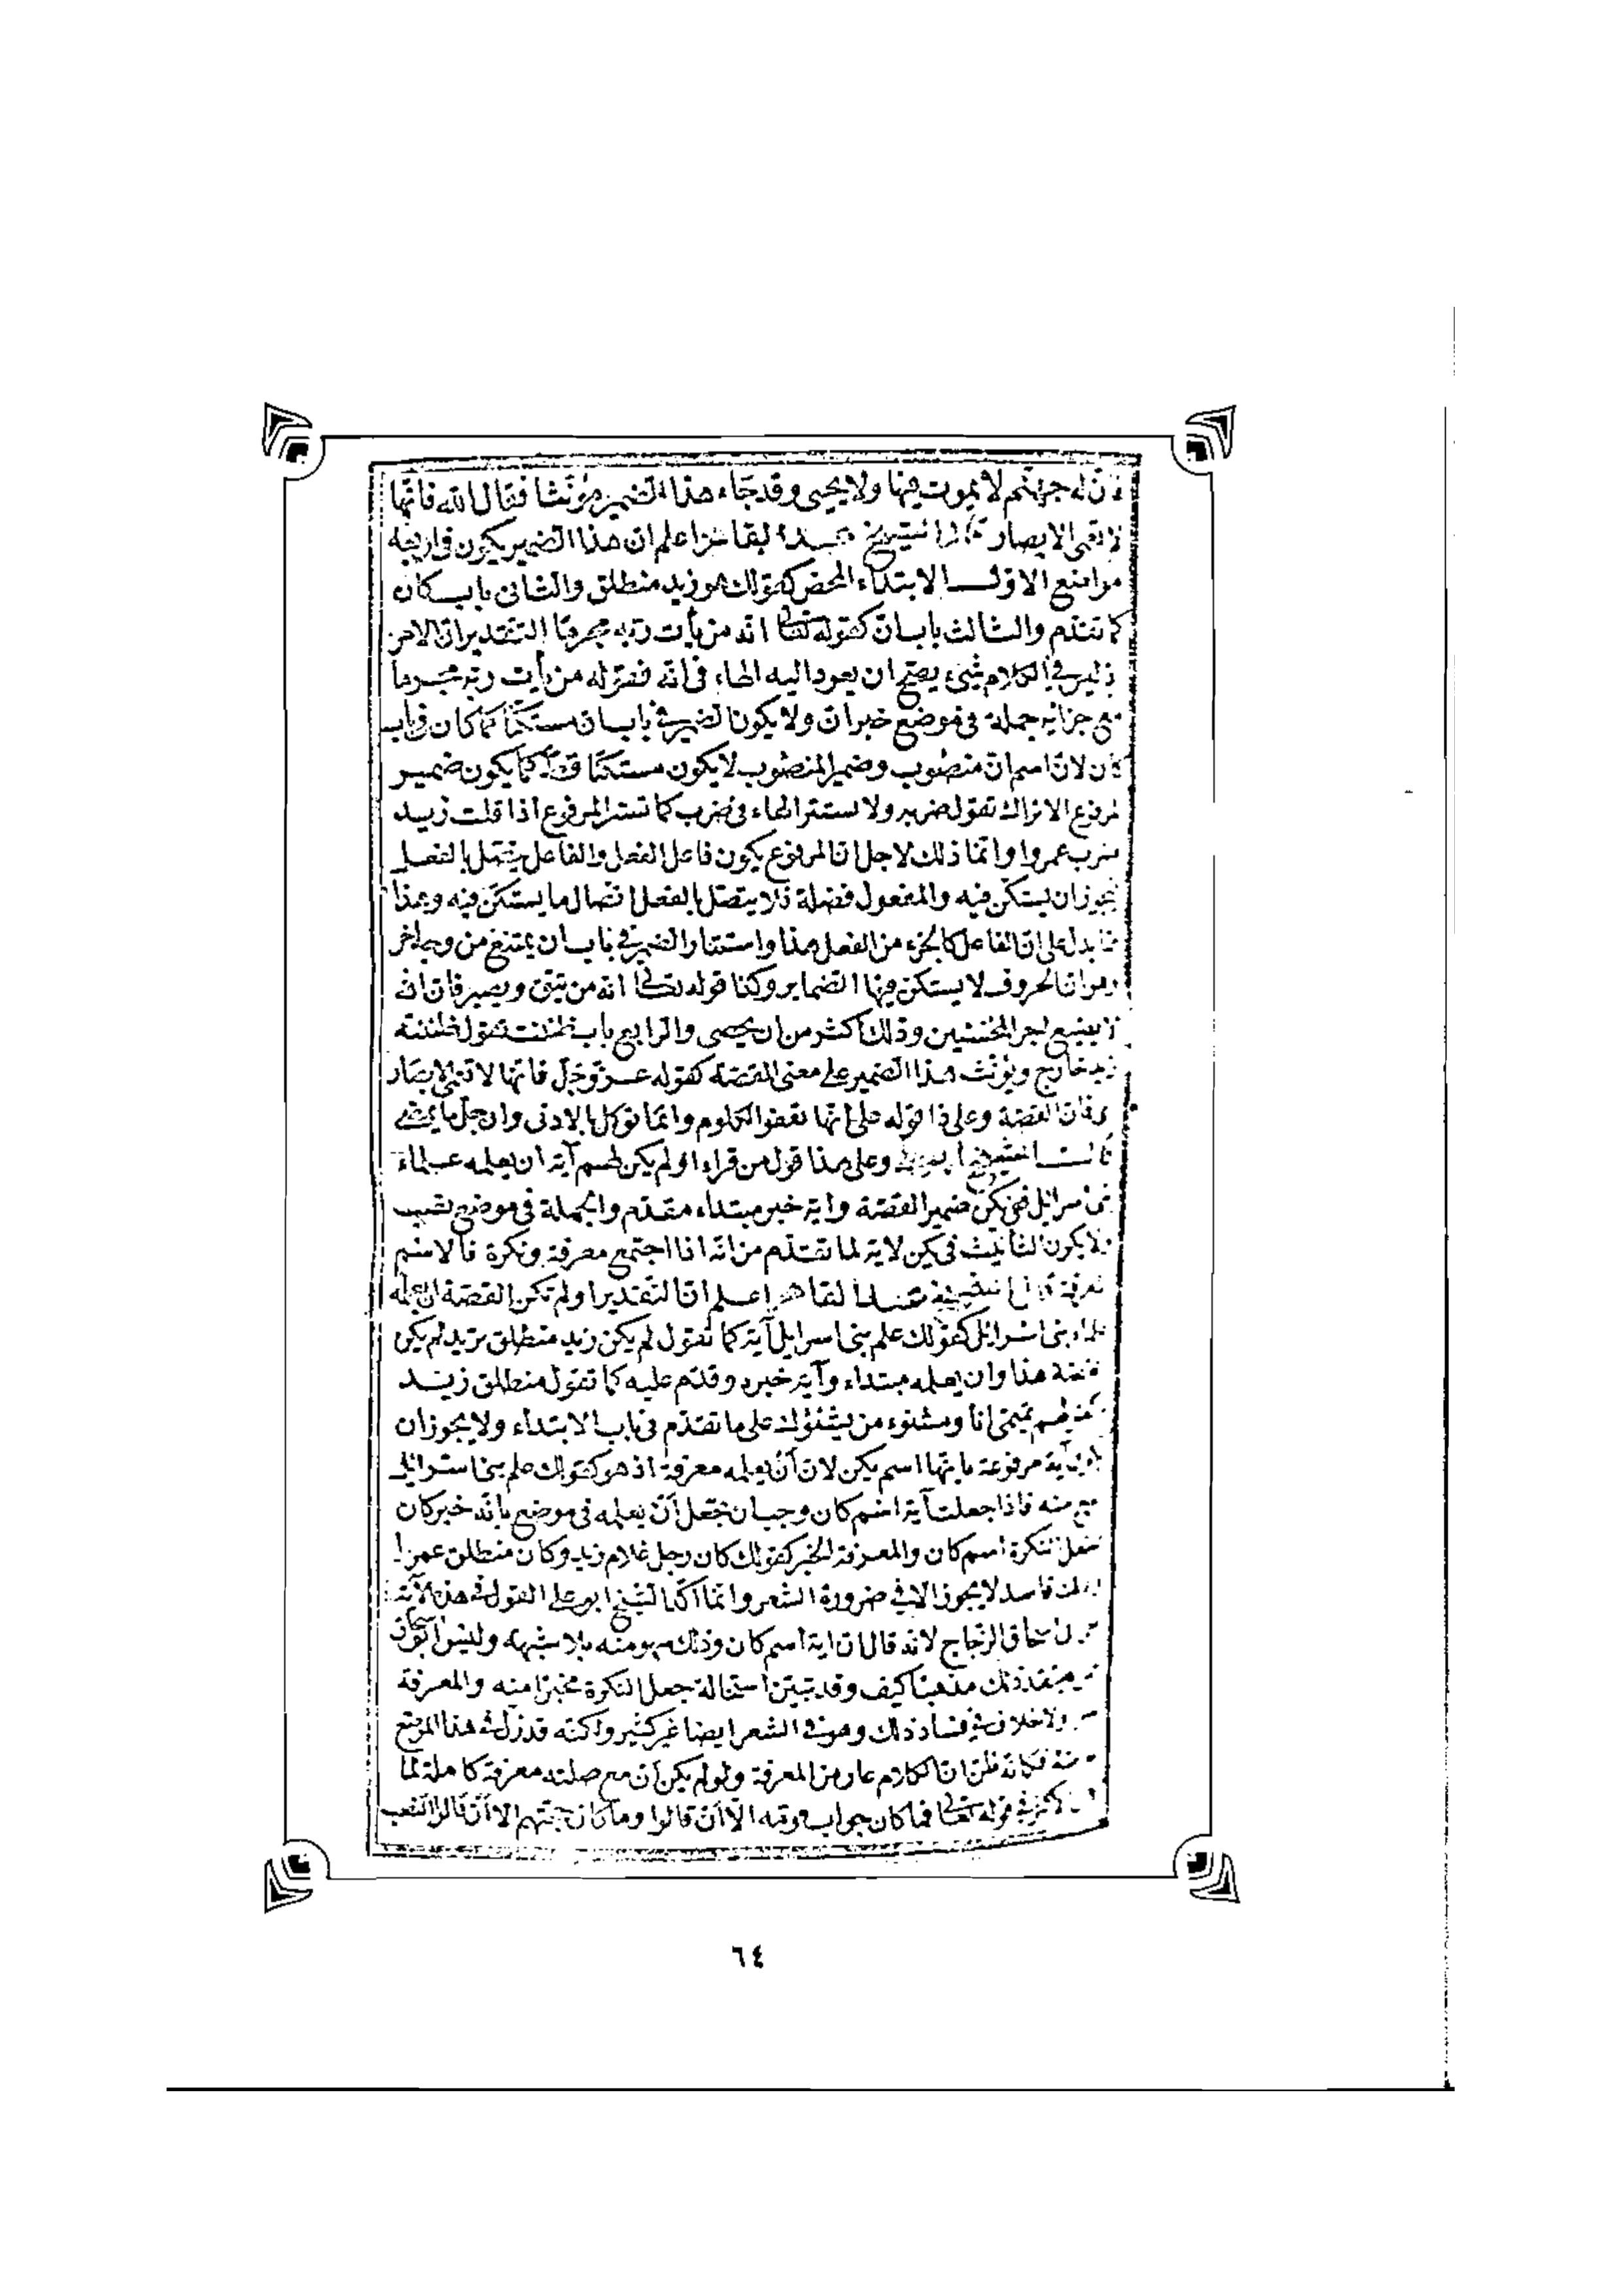 فان له جهنم لا يموت فيها ولا يحيى وقد جاء هذا الضمير مؤنثا فقال الله فانها
لا تعمى الابصار قال الشيخ عبد القاهر اعلم ان هذا الضمير يكون في اربعة
مواضع الاول الابتداء المحض كقولك هو زيد منطلق والثاني باب كان
كما تقدم والثالث باب ان كقوله تعالى انه من يأت ربه مجرما التقدير ان الامر
وليس في الكلام شيء يصح ان يعود اليه الهاء في انه فقوله من يأت ربه مجرما
مع جزائه جملة في موضع خبر ان ولا يكون الضمير في باب ان مستكنا كما كان في باب
كان لان اسم ان منصوب وضمير المنصوب لا يكون مستكنا قط كما يكون ضمير
المرفوع الا تراك تقول ضربه ولا تستتر الهاء في ضرب كما تستتر المرفوع اذا قلت زيد
ضرب عمروا وانما ذلك لاجل ان المرفوع يكون فاعل الفعل والفاعل يتصل بالفعل
فيجوز ان يستكن فيه والمفعول فضلة فلا يتصل بالفعل اتصال ما يستكن فيه وهذا
مما يدل على ان الفاعل كالجزء من الفعل هذا واستتار الضمير في باب ان يمتنع من وجه اخر
وهو ان الحروف لا يستكن فيها الضماير وكذا قوله تعالى انه من يتق ويصبر فان الله
لا يضيع اجر المحسنين وذلك اكثر من ان يحصى والرابع باب ظننت تقول ظننته
زيد خارج ويؤنث هذا الضمير على معنى القصة كقوله عز وجل فانها لا تعمى الابصار
وفان القصة وعلى ذا قوله على انها تعفو الكلوم وانما نوكل بالادنى وان جل ما يمضي
قال الشيخ ابو علي وعلى هذا قول من قراء اولم يكن لهم آية ان يعلمه علماء
بني اسرائل ففي تكن ضمير القصة واية خبر مبتداء مقدم والجملة في موضع نصب
ولا يكون التانيث في يكن لاية لما تقدم من انه اذا اجتمع معرفة ونكرة فالاسم
المعرفة قال الشيخ عبد القاهر اعلم ان التقدير اولم تكن القصة ان يعلمه
علماء بني اسرائل كقولك علم بني اسرايل آية كما تقول لم يكن زيد منطلق تريد لم يكن
القصة هذا وان يعلمه مبتداء وآية خبره وقدم عليه كما تقول منطلق زيد
كقولهم تميمي انا ومشنوء من يشنؤك على ما تقدم في باب الابتداء ولا يجوز ان
يكون آية مرفوعة بانها اسم يكن لان أن يعلمه معرفة اذ هو كقولك علم بني اسرائل
فاذا جعلت آية اسم كان وجب ان تجعل أن يعلمه في موضع بانه خبر كان
فتجعل النكرة اسم كان والمعرفة الخبر كقولك كان رجل غلام زيد وكان منطلق عمرا
وذلك فاسد لا يجوز الا في ضرورة الشعر وانما اكد الشيخ ابو علي القول في هذه الآية
اسحاق الزجاج لانه قال ان اية اسم كان وذلك سهو منه بلا شبهة وليس ابو اسحاق
يعتقد ذلك مذهبا كيف وقد تبين استحالة جعل النكرة مخبرا منه والمعرفة
ولا خلاف في فساد ذلك وهو في الشعر ايضا غير كثير ولكنه قد زل في هذا الموضع
فكانه ظن ان الكلام عار من المعرفة ولو لم يكن أن مع صلته معرفة كاملة لما
في قوله تعالى فما كان جواب قومه الا أن قالوا وما كان حجتهم الا أن قالوا النصب
٦٤